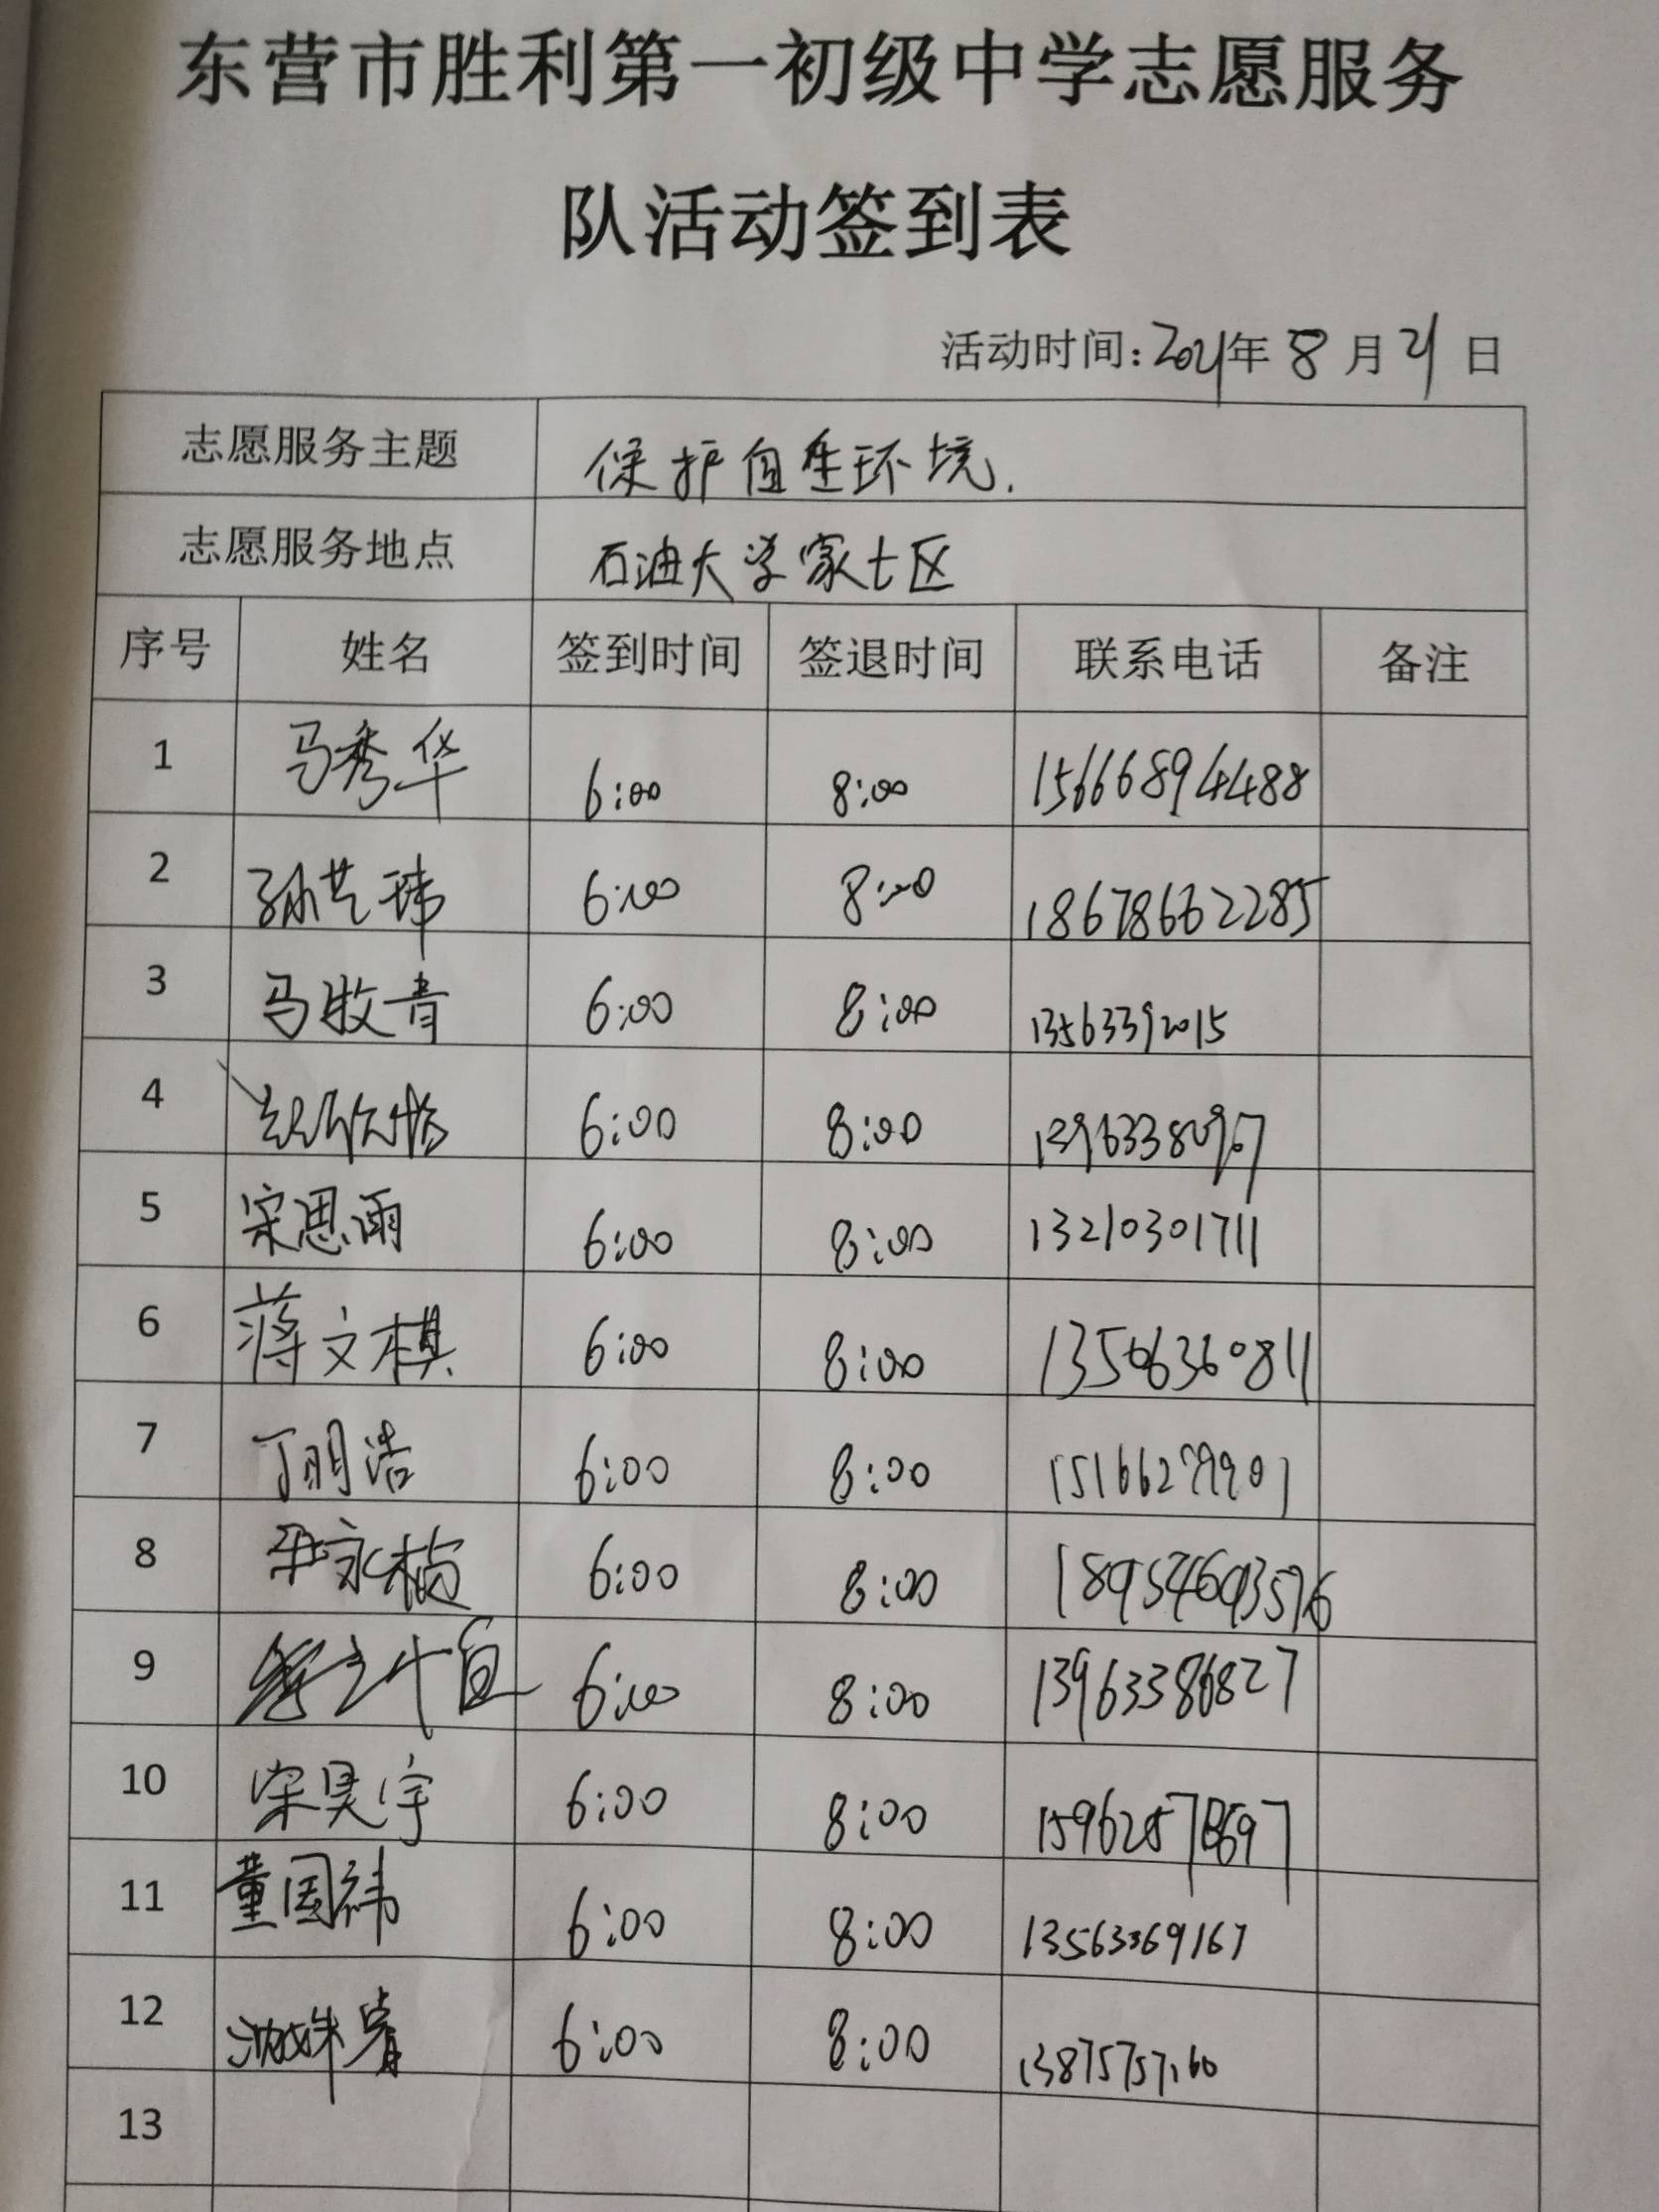 东营市胜利第一初级中学志愿服务
队活动签到表
活动时间:2021年8月21日
志愿服务主题 保护自生环境.
志愿服务地点 石油大学家七区
序号 姓名 签到时间 签退时间 联系电话 备注
1 马秀华 6:00 8:00 15666894488
2 孙艺玮 6:00 8:00 18678662285
3 马牧青 6:00 8:00 13563392015
4 6:00 8:00
5 宋思雨 6:00 8:00 13210301711
6 蒋文棋 6:00 8:00
7 丁明浩 6:00 8:00
8 尹永桢 6:00 8:00
9 6:00 8:00
10 宋昊宇 6:00 8:00
11 董国祎 6:00 8:00 13563369167
12 6:00 8:00
13